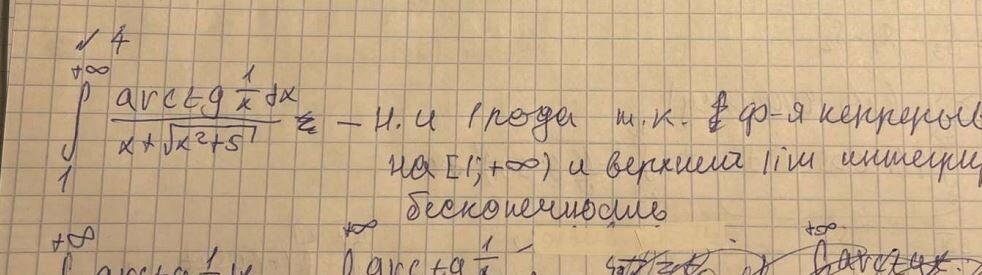 √ 4
+∞
∫ arctg 1/x dx / x + √x²+5 — н.и 1 рода т.к. ф-я непрерыв
1
на [1; +∞) и верхний lim интегрир
бесконечность
+∞ +∞ +∞
∫ arctg 1/x ∫ arctg 1/x